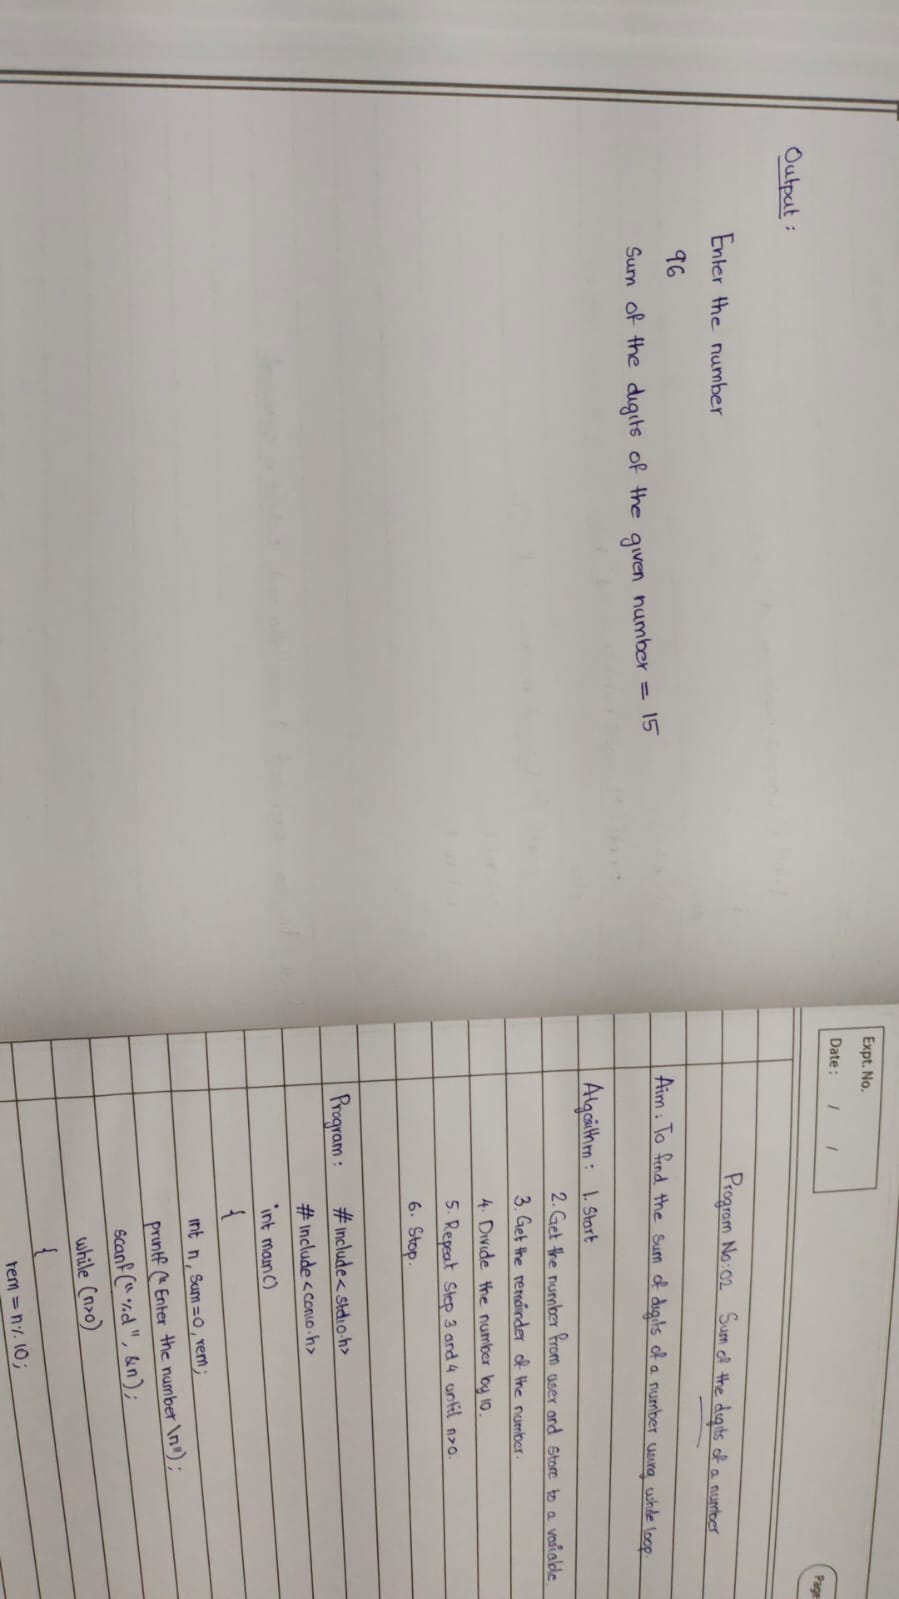 Output :
Enter the number
96
Sum of the digits of the given number = 15
Expt. No.
Date : / /
Page
Program No:02 Sum of the digits of a number
Aim : To find the sum of digits of a number using while loop.
Algorithm : 1. Start
2. Get the number from user and store to a variable.
3. Get the remainder of the number.
4. Divide the number by 10.
5. Repeat Step 3 and 4 until n>0.
6. Stop.
Program : # include< stdio.h>
# include <conio.h>
int main()
{
int n, Sum=0, rem;
printf ("Enter the number \n");
scanf("%d", &n);
while (n>0)
{
rem = n% 10;